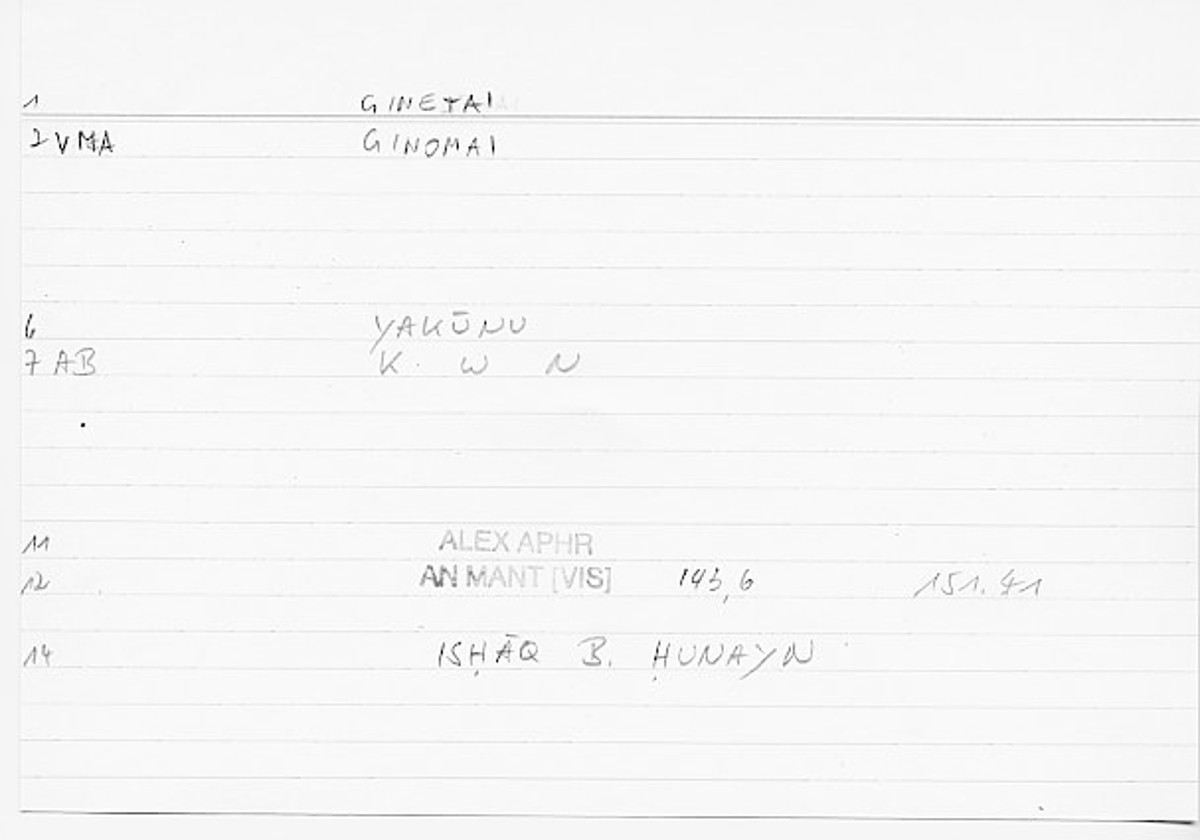 1 GINETAI
2 VMA GINOMAI
6 YAKŪNU
7 AB K. W N
11 ALEX APHR
12 AN MANT [VIS] 143,6 151.41
14 ISḤĀQ B. ḤUNAYN